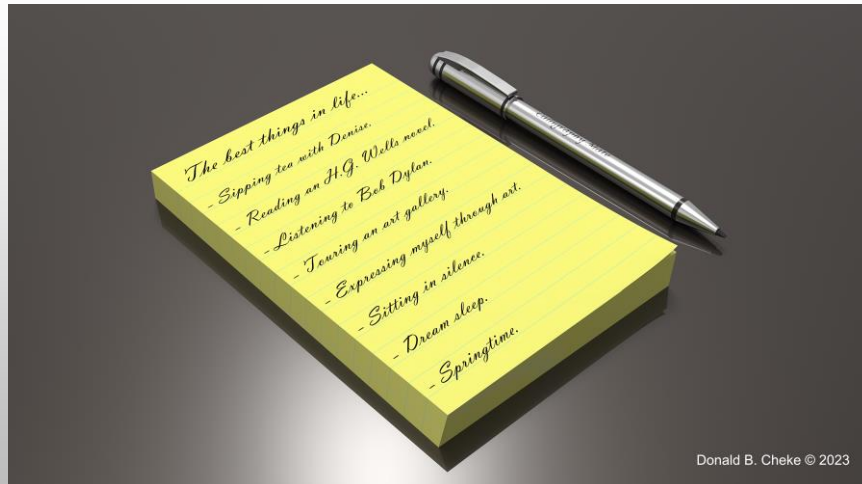 The best things in life...
- Sipping tea with Denise.
- Reading an H.G. Wells novel.
- Listening to Bob Dylan.
- Touring an art gallery.
- Expressing myself through art.
- Sitting in silence.
- Dream sleep.
- Springtime.
Donald B. Cheke © 2023